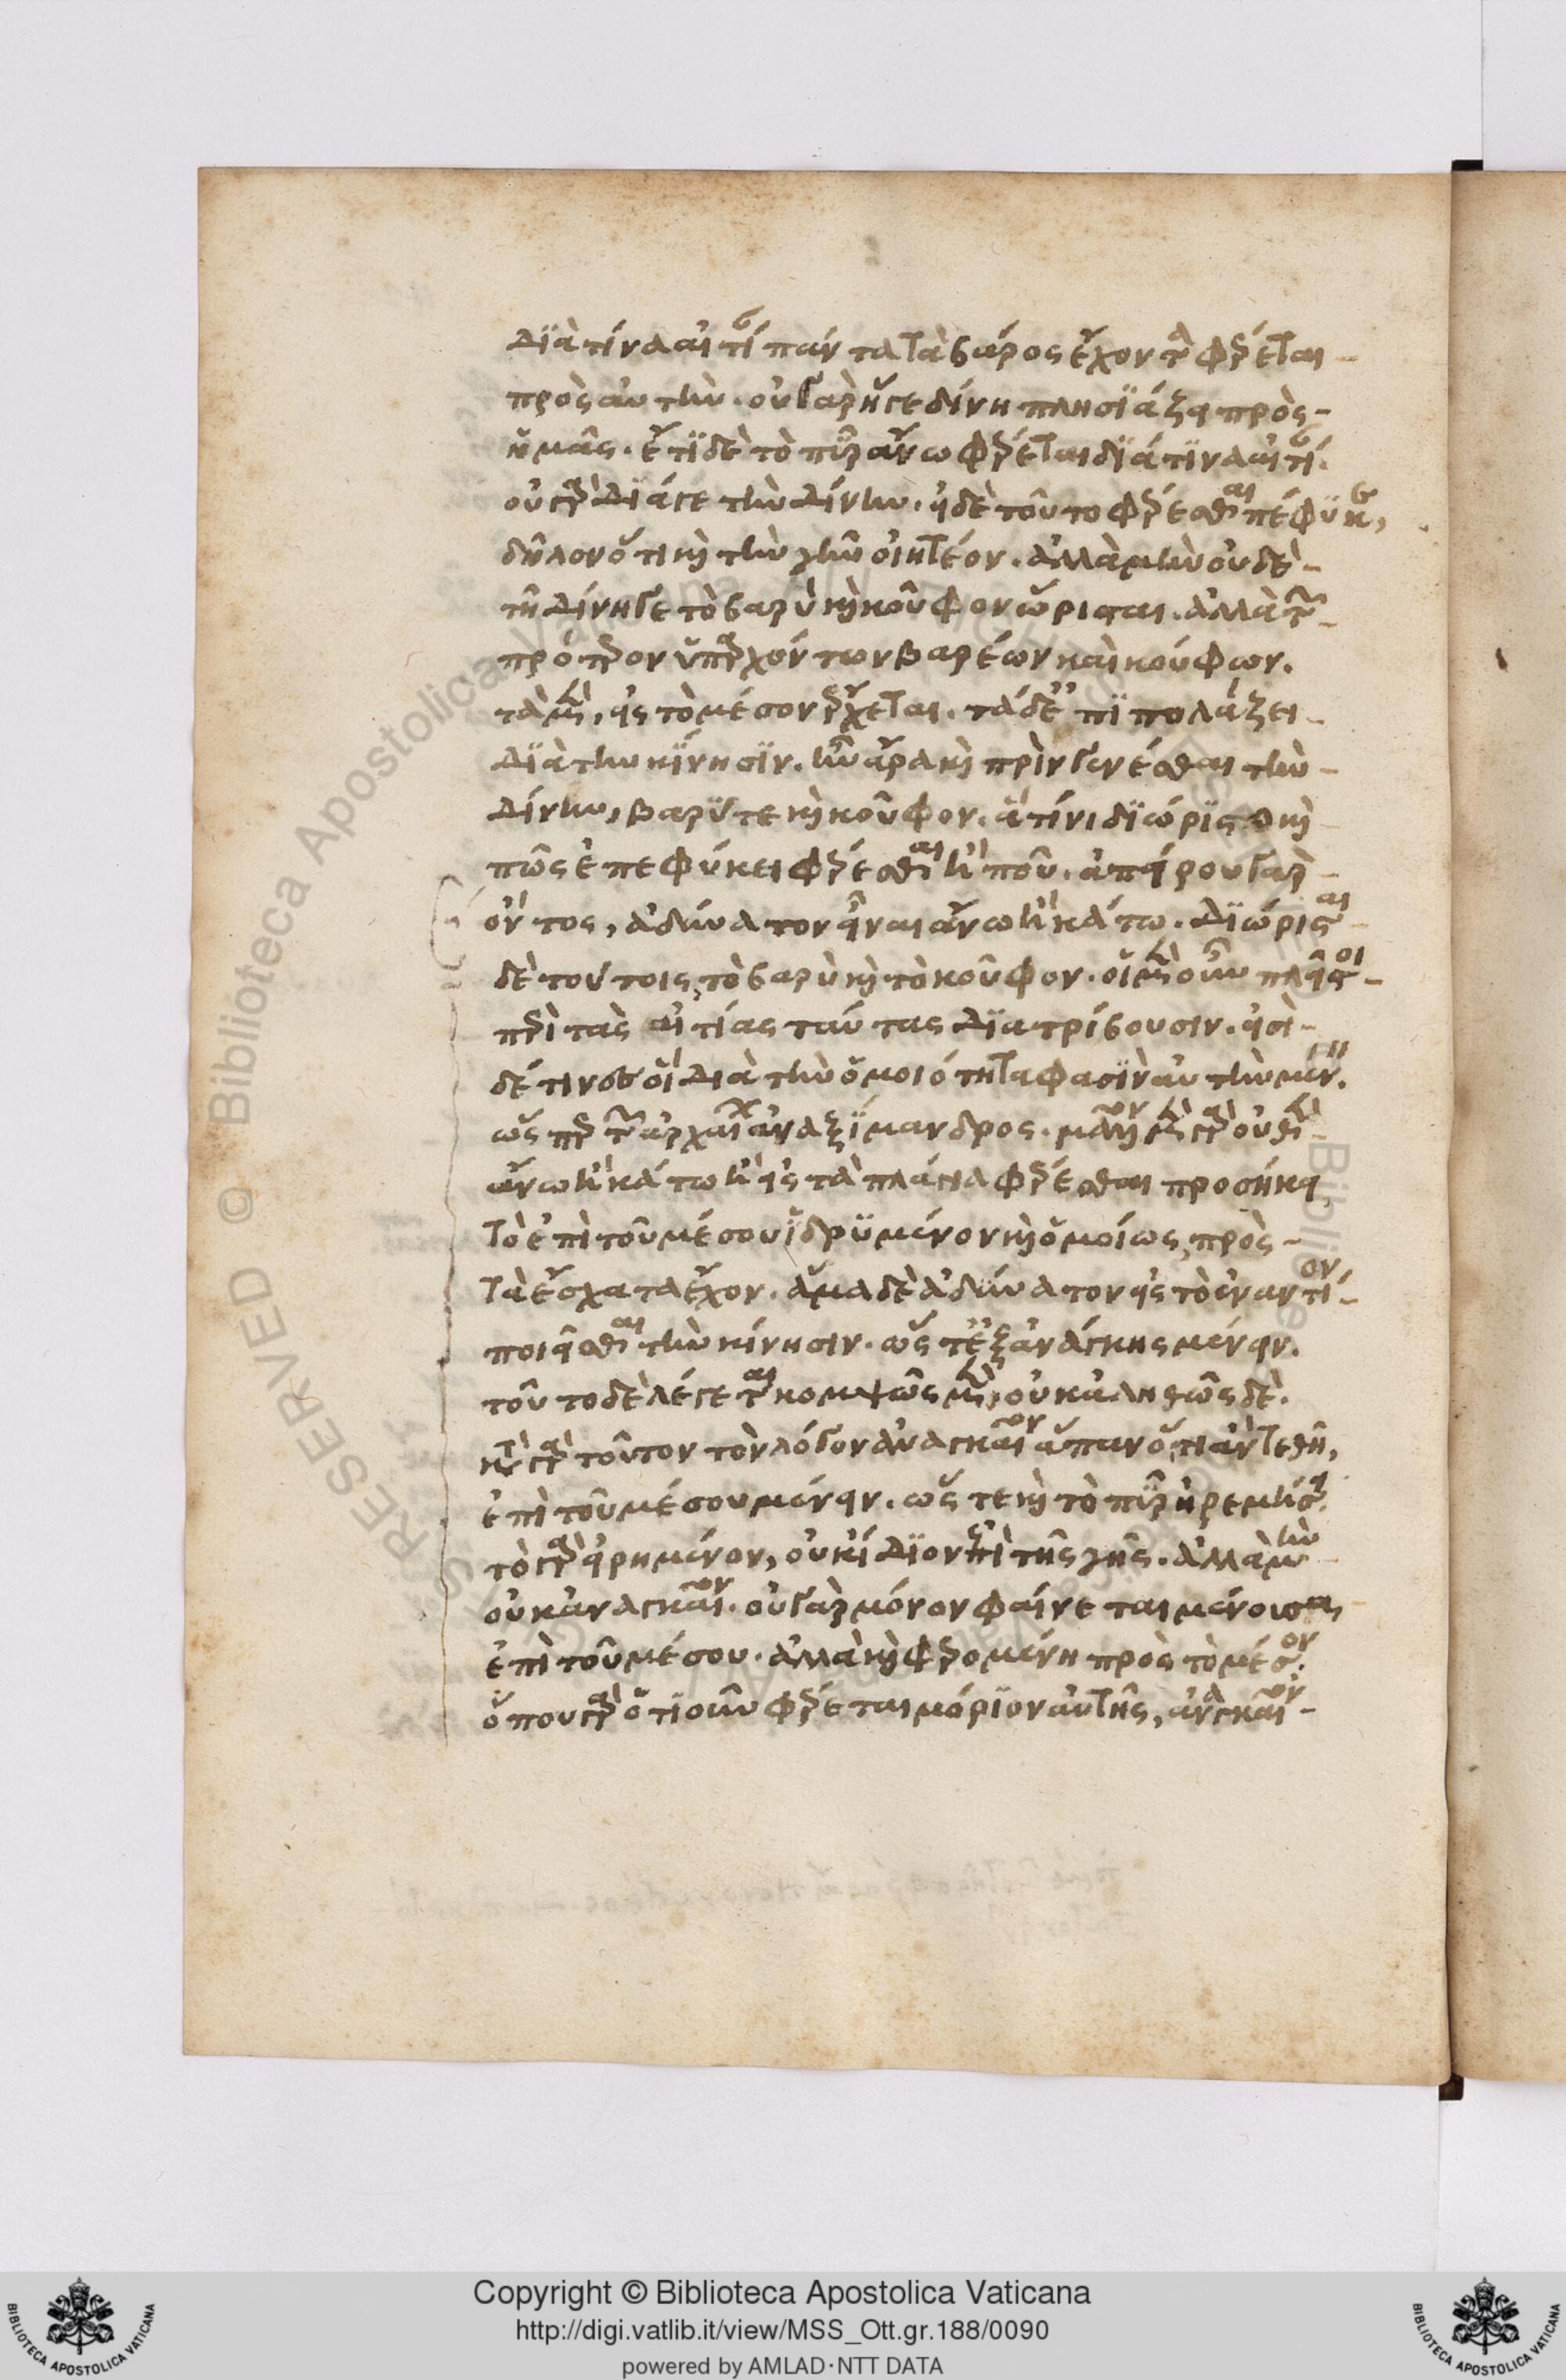 διὰ τίνα αἰτίαν πάντα τὰ βάρος ἔχοντα φέρεται
πρὸς αὐτήν. οὐ γὰρ ἥ γε δίνη πλησιάζει πρὸς
ἡμᾶς. ἔτι δὲ τὸ πῦρ ἄνω φέρεται διά τινα αἰτίαν.
οὐ γὰρ διά γε τὴν δίνην. εἰ δὲ τοῦτο φέρεσθαι πέφυκεν,
δῆλον ὅτι καὶ τὴν γῆν οἰητέον. ἀλλὰ μὴν οὐδὲ
τῇ δίνῃ γε τὸ βαρὺ καὶ κοῦφον ὥρισται. ἀλλὰ τῶν
πρότερον ὑπαρχόντων βαρέων καὶ κούφων.
τὰ μὲν, εἰς τὸ μέσον ἔρχεται. τὰ δ' ἐπιπολάζει
διὰ τὴν κίνησιν. ἦν ἄρα καὶ πρὶν γενέσθαι τὴν
δίνην, βαρύ τε καὶ κοῦφον. ἃ τίνι διώριστο καὶ
πῶς ἐπεφύκει φέρεσθαι ἢ ποῦ. ἀπείρου γὰρ
ὄντος, ἀδύνατον εἶναι ἄνω ἢ κάτω. διώρισται
δὲ τούτοις τὸ βαρὺ καὶ τὸ κοῦφον. οἱ μὲν οὖν πλεῖστοι
περὶ τὰς αἰτίας ταύτας διατρίβουσιν. εἰσὶ
δέ τινες οἳ διὰ τὴν ὁμοιότητα φασὶν αὐτὴν μένειν.
ὥσπερ τῶν ἀρχαίων ἀναξίμανδρος. μᾶλλον μὲν γὰρ οὐθὲν
ἄνω ἢ κάτω ἢ εἰς τὰ πλάγια φέρεσθαι προσήκει
τὸ ἐπὶ τοῦ μέσου ἱδρυμένον καὶ ὁμοίως πρὸς
τὰ ἔσχατα ἔχον. ἅμα δὲ ἀδύνατον εἰς τὸ ἐναντίον
ποιεῖσθαι τὴν κίνησιν. ὥστ' ἐξ ἀνάγκης μένειν.
τοῦτο δὲ λέγεται κομψῶς μὲν, οὐκ ἀληθῶς δέ.
κατὰ γὰρ τοῦτον τὸν λόγον ἀναγκαῖον ἅπαν ὅ,τι ἂν τεθῇ,
ἐπὶ τοῦ μέσου μένειν. ὥστε καὶ τὸ πῦρ ἠρεμήσει.
τὸ γὰρ εἰρημένον, οὐκ ἴδιον ἐπὶ τῆς γῆς. ἀλλὰ μὴν
οὐκ ἀναγκαῖον. οὐ γὰρ μόνον φαίνεται μένουσα
ἐπὶ τοῦ μέσου. ἀλλὰ καὶ φερομένη πρὸς τὸ μέσον.
ὅπου γὰρ ὁτιοῦν φέρεται μόριον αὐτῆς, ἀναγκαῖον
Copyright © Biblioteca Apostolica Vaticana
http://digi.vatlib.it/view/MSS_Ott.gr.188/0090
powered by AMLAD·NTT DATA